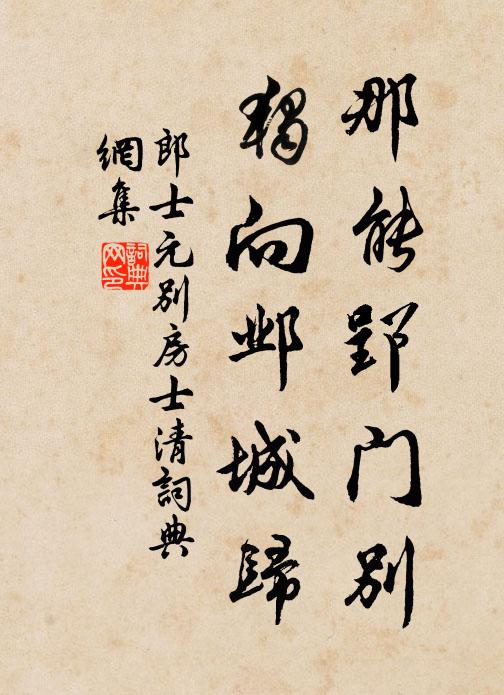 那能郢门别
独向邺城歸
郎士元别房士清詞典
網集
詞典
网印